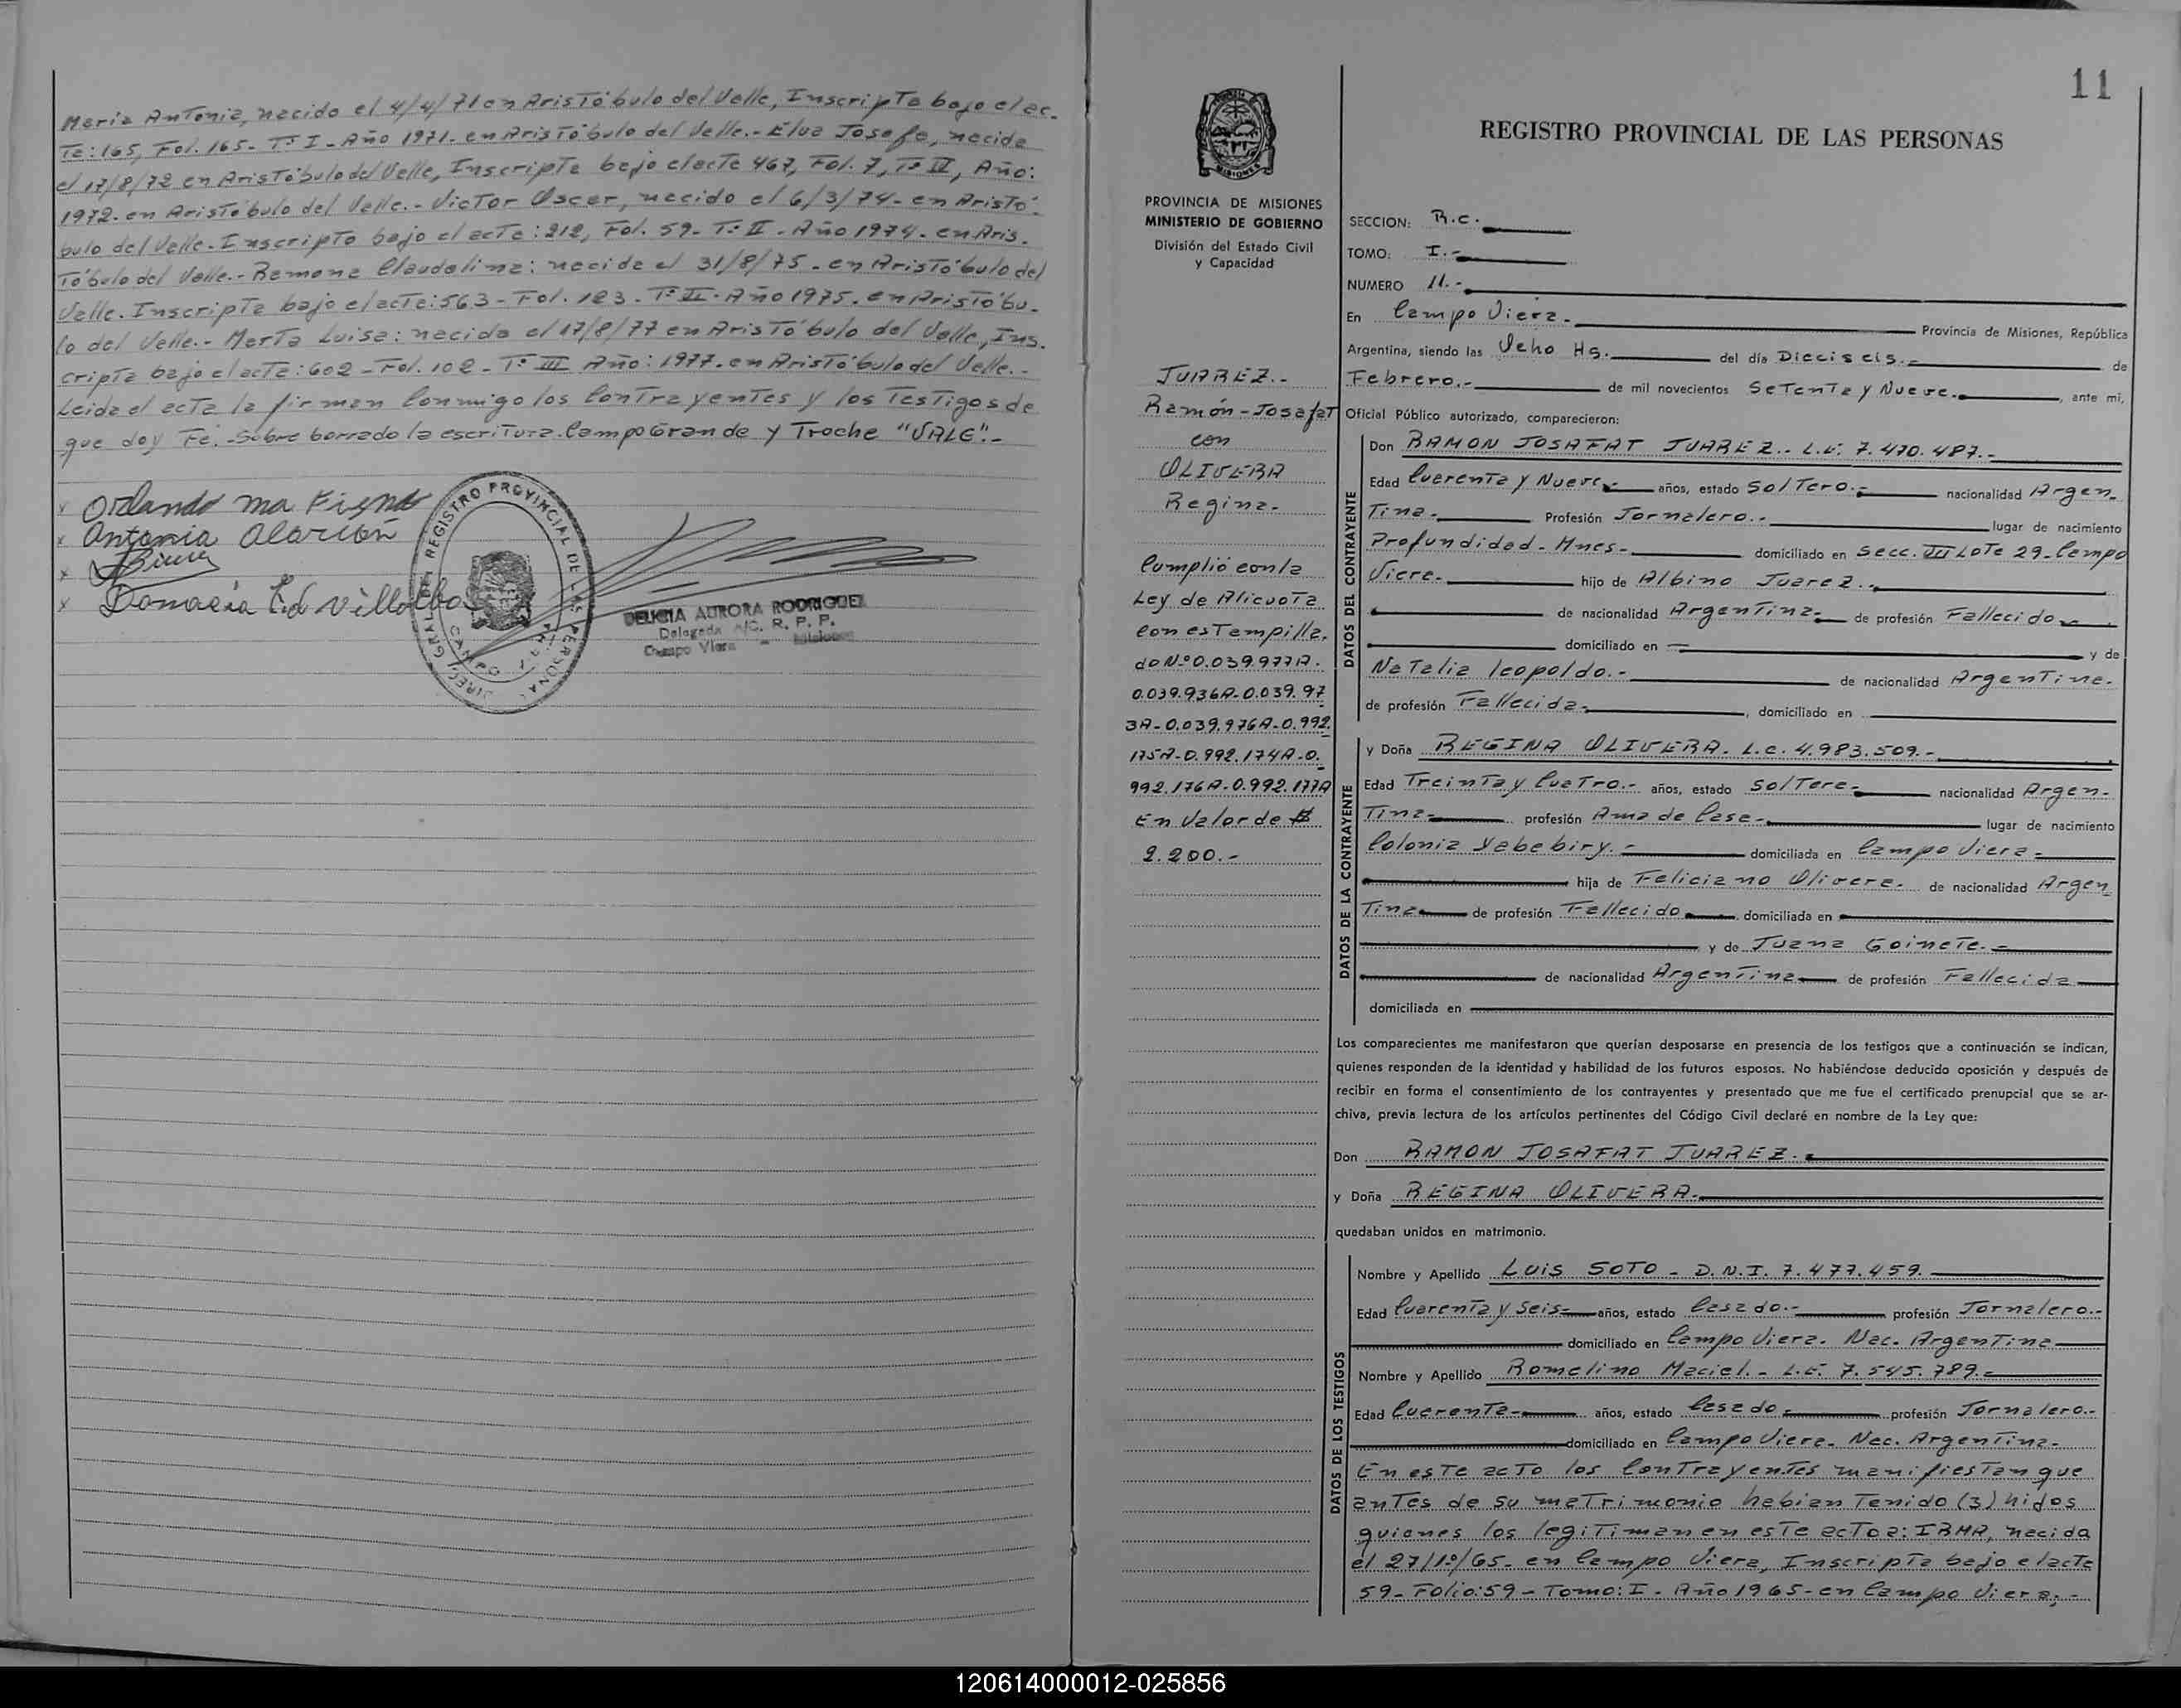 Maria Antonia, nacida el 4/4/71 en Aristóbulo del Valle, Inscripta bajo el ac-
ta: 165, Fol. 165- Tº I - Año 1971- en Aristóbulo del Valle.- Elva Josefa, nacida
el 17/8/72 en Aristóbulo del Valle, Inscripta bajo el acta 467, Fol. 7, Tº IV, Año:
1972- en Aristóbulo del Valle.- Victor Oscar, nacido el 6/3/74- en Aristó-
bulo del Valle- Inscripto bajo el acta: 212, Fol. 59- Tº II - Año 1974- en Aris-
tóbulo del Valle.- Ramona Claudelina: nacida el 31/8/75- en Aristóbulo del
Valle. Inscripta bajo el acta: 563- Fol. 123- Tº II- Año 1975. en Aristóbu-
lo del Valle.- Marta Luisa: nacida el 17/8/77 en Aristóbulo del Valle, Ins-
cripta bajo el acta: 602- Fol. 102- Tº III Año: 1977- en Aristóbulo del Valle.-
Leida el acta la firman Conmigo los Contrayentes y los Testigos de
que doy Fé.- Sobre borrado la escritura. Campo Grande y Troche "VALE".-
x Orlando ma
x Antonia Alarcón
x
x Donacia Villalba
DIREC. GRAL. DEL REGISTRO PROVINCIAL DE LAS PERSONAS
CAMPO VIERA
DELICIA AURORA RODRIGUEZ
Delegada A/C. R. P. P.
Campo Viera - Misiones
11
MISIONES
PROVINCIA DE MISIONES
MINISTERIO DE GOBIERNO
División del Estado Civil
y Capacidad
JUAREZ.-
Ramón - Josafat
con
OLIVERA
Regina.-
Cumplió con la
Ley de Alicuota
con estampilla-
do Nº 0.039.977A-
0.039.936A-0.039.97
3A-0.039.976A-0.992.
175A-0.992.174A-0.
992.176A-0.992.177A
En Valor de $
2.200.-
REGISTRO PROVINCIAL DE LAS PERSONAS
SECCION: R.C.
TOMO: I.-
NUMERO 11.-
En Campo Viera.- Provincia de Misiones, República
Argentina, siendo las Ocho Hs. del día Dieciseis.- de
Febrero.- de mil novecientos Setenta y Nueve.- , ante mi,
Oficial Público autorizado, comparecieron:
DATOS DEL CONTRAYENTE
Don RAMON JOSAFAT JUAREZ.- L.E. 7.470.487.-
Edad Cuarenta y Nueve.- años, estado Soltero.- nacionalidad Argen-
tina.- Profesión Jornalero.- lugar de nacimiento
Profundidad- Mnes- domiciliado en Secc. VII Lote 29- Campo
Viera.- hijo de Albino Juarez.-
de nacionalidad Argentina.- de profesión Fallecido
domiciliado en y de
Natalia Leopoldo.- de nacionalidad Argentina.
de profesión Fallecida.- , domiciliado en
DATOS DE LA CONTRAYENTE
y Doña REGINA OLIVERA. L.C. 4.983.509.-
Edad Treinta y Cuatro.- años, estado Soltera- nacionalidad Argen-
tina- profesión Ama de Casa- lugar de nacimiento
Colonia Yabebiry.- domiciliada en Campo Viera-
hija de Feliciano Olivera. de nacionalidad Argen-
tina de profesión Fallecido domiciliada en
y de Juana Goinete.-
de nacionalidad Argentina de profesión Fallecida
domiciliada en
Los comparecientes me manifestaron que querían desposarse en presencia de los testigos que a continuación se indican,
quienes responden de la identidad y habilidad de los futuros esposos. No habiéndose deducido oposición y después de
recibir en forma el consentimiento de los contrayentes y presentado que me fue el certificado prenupcial que se ar-
chiva, previa lectura de los artículos pertinentes del Código Civil declaré en nombre de la Ley que:
Don RAMON JOSAFAT JUAREZ.-
y Doña REGINA OLIVERA.-
quedaban unidos en matrimonio.
DATOS DE LOS TESTIGOS
Nombre y Apellido LUIS SOTO - D.N.I. 7.477.459.
Edad Cuarenta y Seis- años, estado Casado.- profesión Jornalero.-
domiciliado en Campo Viera. Nac. Argentina
Nombre y Apellido Romelino Maciel.- L.E. 7.545.789.-
Edad Cuarenta- años, estado Casado- profesión Jornalero.-
domiciliado en Campo Viera. Nac. Argentina-
En este acto los Contrayentes manifiestan que
antes de su matrimonio habian Tenido (3) hijos
quienes los legitiman en este acto a: IRMA, nacida
el 27/1º/65- en Campo Viera, Inscripta bajo el acta
59- Folio: 59- Tomo: I- Año 1965- en Campo Viera;-
120614000012-025856